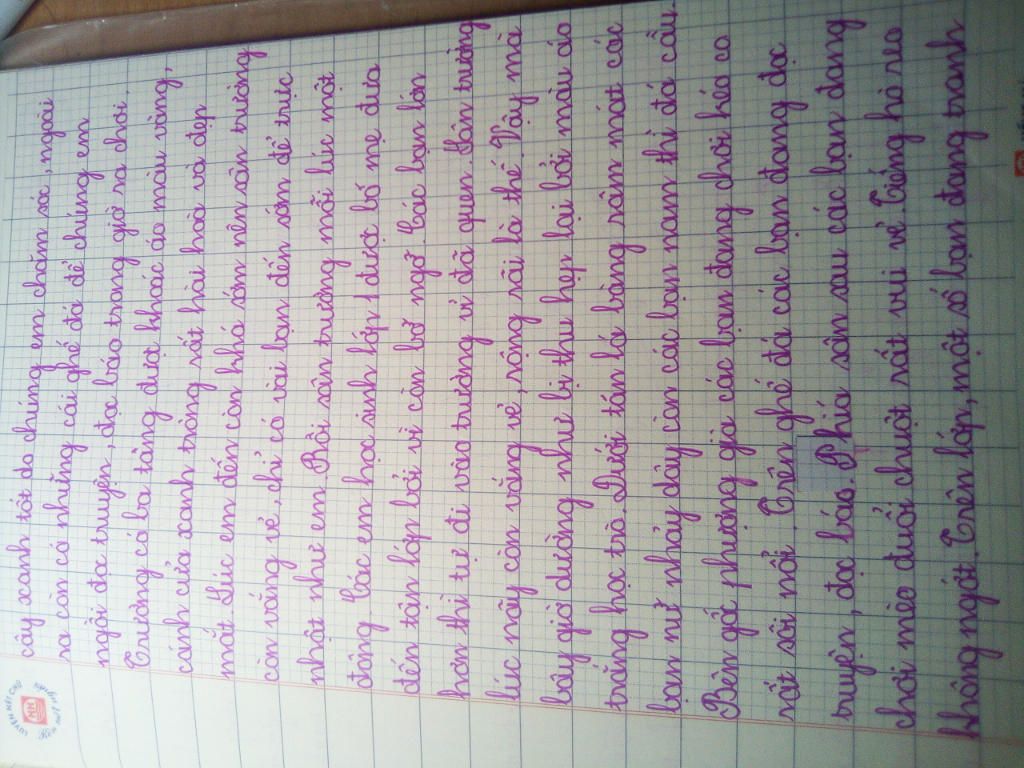 cây xanh tốt do chúng em chăm sóc, ngoài
ra còn có những cái ghế đá để chúng em
ngồi đọc truyện, đọc báo trong giờ ra chơi.
Trường có ba tầng được khoác áo màu vàng,
cánh cửa xanh trông rất hài hoà và đẹp
mắt. Lúc em đến còn khá sớm nên sân trường
còn vắng vẻ, chỉ có vài bạn đến sớm để trực
nhật như em. Rồi sân trường mỗi lúc một
đông. Các em học sinh lớp 1 được bố mẹ đưa
đến tận lớp bởi vì còn bỡ ngỡ. Các bạn lớn
hơn thì tự đi vào trường vì đã quen. Sân trường
lúc nãy còn vắng vẻ, rộng rãi là thế. Vậy mà
bây giờ dường như bị thu hẹp lại bởi màu áo
trắng học trò. Dưới tán lá bàng râm mát các
bạn nữ nhảy dây còn các bạn nam thì đá cầu.
Bên gốc phượng già các bạn đang chơi kéo co
rất sôi nổi. Trên ghế đá các bạn đang đọc
truyện, đọc báo. Phía sân sau các bạn đang
chơi mèo đuổi chuột rất vui vẻ. Tiếng hò reo
không ngớt. Trên lớp, một số bạn đang tranh
LUYỆN NÉT CHỮ
MM
Rèn nết người